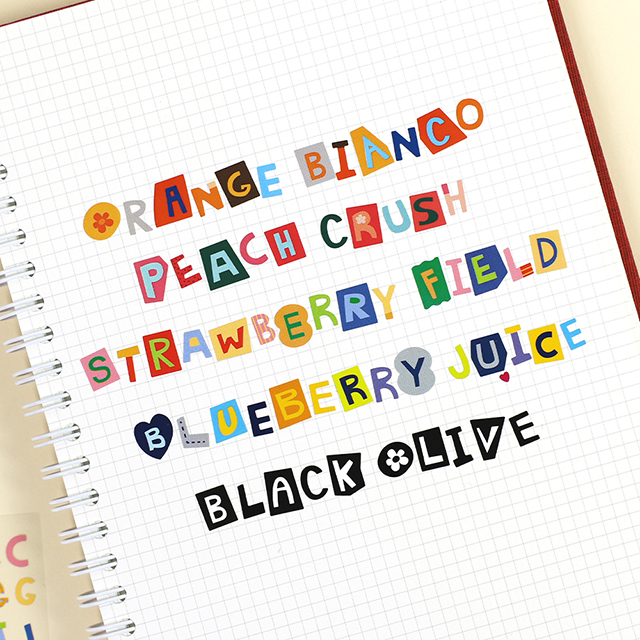 ORANGE BIANCO
PEACH CRUSH
STRAWBERRY FIELD
BLUEBERRY JUICE
BLACK OLIVE